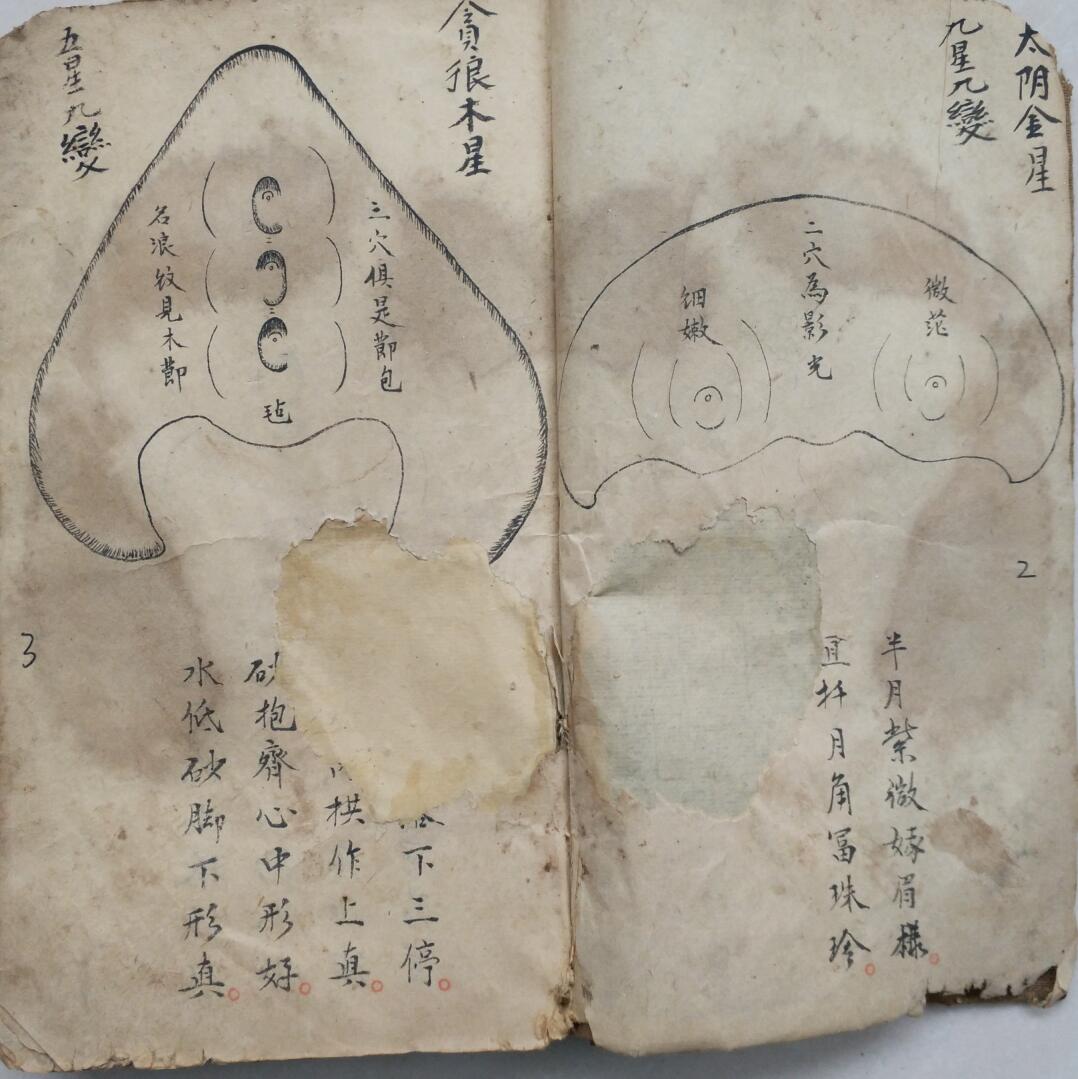 太阴金星
九星九變
微茫
二穴為影光
细嫩
2
半月紫微嫁眉樣
扦月角冨珠玲
貪狼木星
三穴俱是節包
毡
名浪紋見木節
五星九變
3
下三停
拱作上真
砂抱齊心中形好
水低砂脚下形真